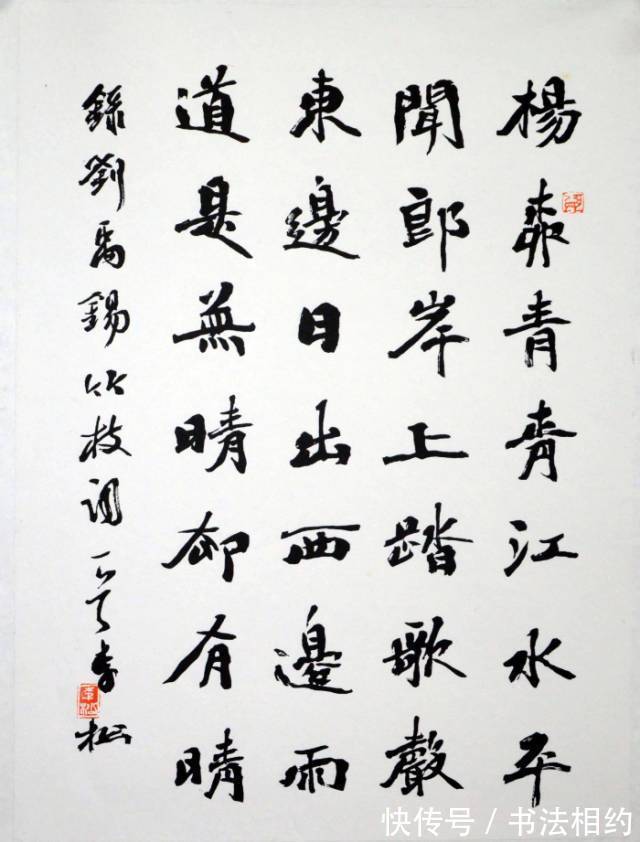 楊柳青青江水平
聞郎岸上踏歌聲
東邊日出西邊雨
道是無晴却有晴
錄劉禹錫竹枝詞 李松
李松
快传号 / 书法相约